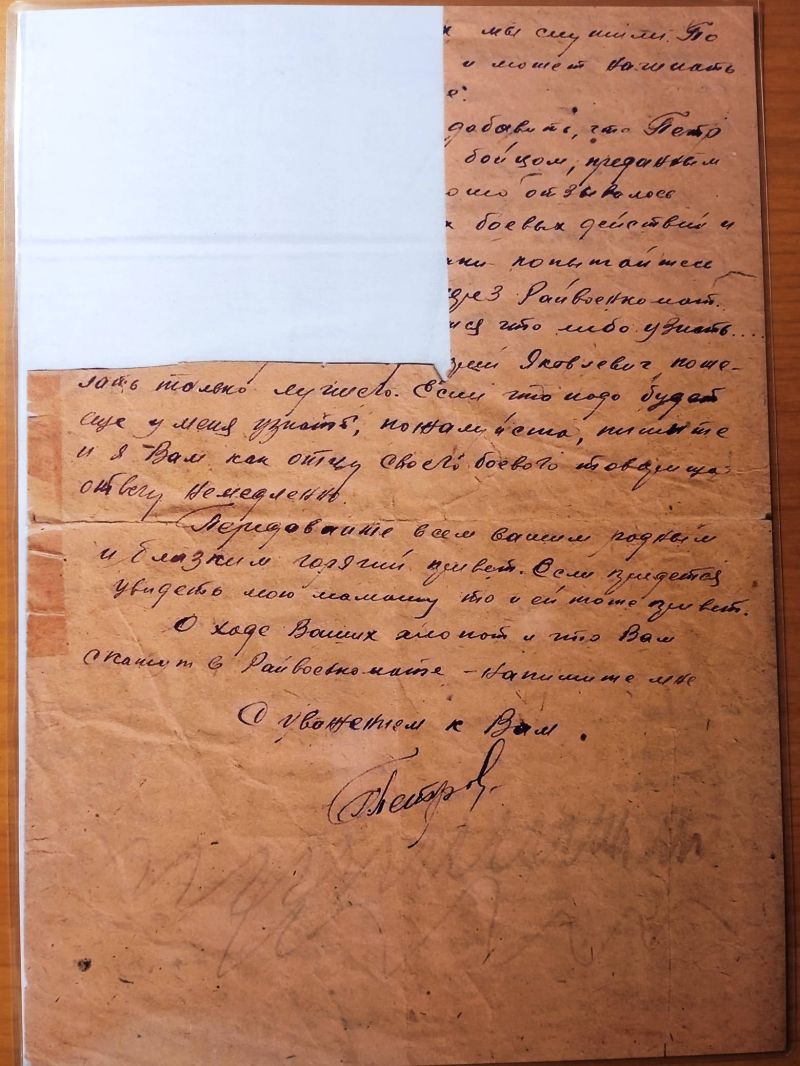 мы служили. По
и может начинать
добавить, что Петр
бойцом, преданным
отзывалось
боевых действий и
попытайтесь
через Райвоенкомат.
что либо узнать....
Яковлевич, поже-
лать только лучшего. Если что надо будет
еще у меня узнать, пожалуйста, пишите
и я Вам как отцу своего боевого товарища
отвечу немедленно.
Передавайте всем вашим родным
и близким горячий привет. Если придется
увидеть мою мамашу то и ей тоже привет.
О ходе Ваших хлопот и что Вам
скажут в Райвоенкомате - напишите мне
С уважением к Вам.
Петров